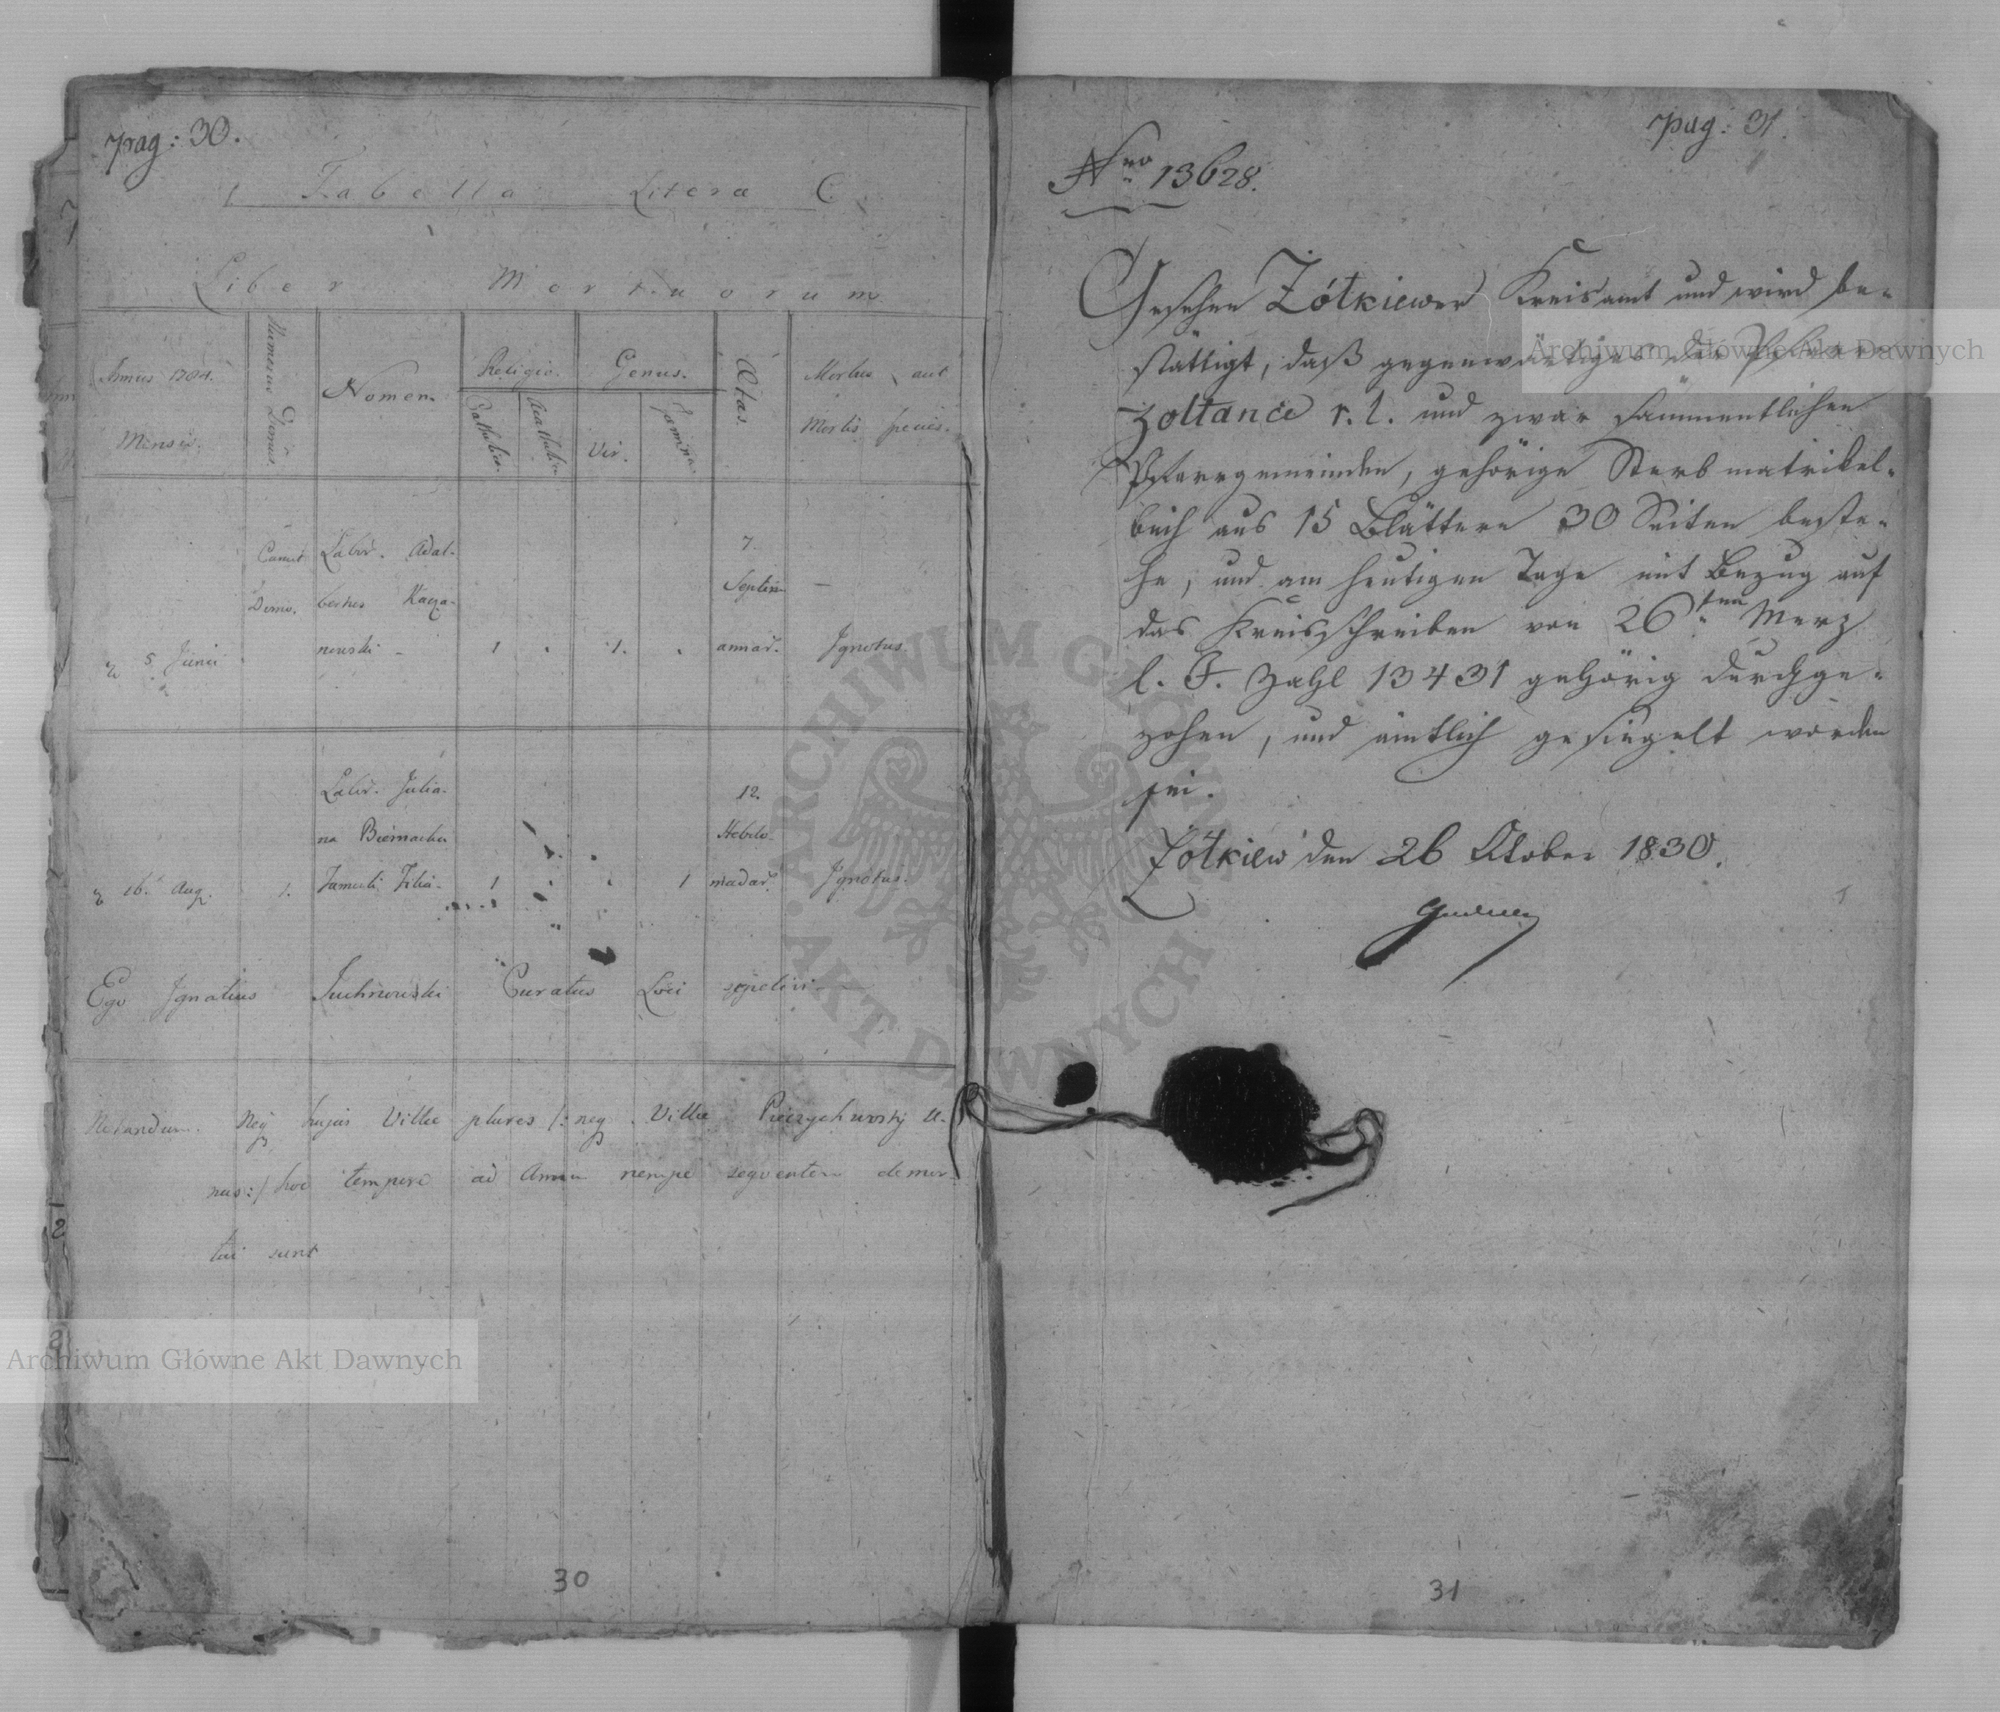 pag: 30.
Tabella Litera C.
Liber Mortuorum
Annus 1784.
Mensis.
Numerus Domus.
Nomen.
Religio.
Catholica.
Acatholica.
Genus.
Vir.
Femina.
Ætas.
Morbus aut
Mortis species.
Caruit
Domo.
Labor. Adal-
bertus Kacza-
nowski -
5 Junii
1
1.
7.
Septim
annar.
Ignotus
Labor. Julia-
na Biernacka
Famuli Filia.
16. Aug.
1.
1
1
12.
Hebdo-
madar.
Ignotus.
Ego Ignatius Juchnowski Curatus Loci sepelivi
Notandum. Neq hujus Villæ plures /: neq Villæ
nus :/ hoc tempore ad Annum nempe sequentem demor-
tui sunt
30
pag: 31.
Nro 13628.
Gesehen Żółkiewer Kreisamt und wird be-
stättigt, daß gegenwärtiges der Pfarre
Żołtance r. l. und zwar sämmentlichen
Pfarrgemeinden, gehörige Sterbmatrikel-
buch aus 15 Blättern 30 Seiten beste-
he, und am heutigen Tage mit Bezug auf
das Kreisschreiben von 26ten Merz
l. J. Zahl 13431 gehörig durchge-
zohen, und ämtlich gesiegelt worden
sei.
Żółkiew den 26 Oktober 1830.
31
Archiwum Główne Akt Dawnych
Archiwum Główne Akt Dawnych
ARCHIWUM GŁÓWNE AKT DAWNYCH